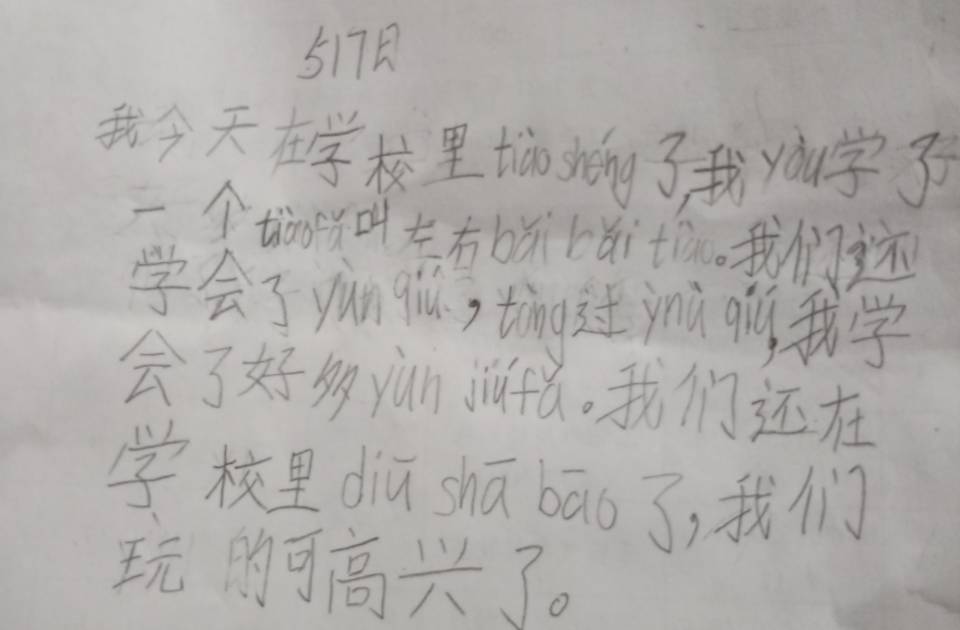 517日
我今天在学校里tiào shéng了,我yòu学了
一个tiàofǎ叫左右bǎi bǎi tiào。我们还
学会了yùn qiú,tōng过ynù qiú,我学
会了好多yùn jiúfǎ。我们还在
学校里diū shā bāo了,我们
玩的可高兴了。